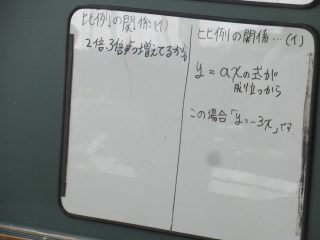 比例の関係…(イ)
2倍.3倍ずつ増えてるから
比例の関係…(イ)
y = axの式が
成り立つから
この場合「y=-3x」です